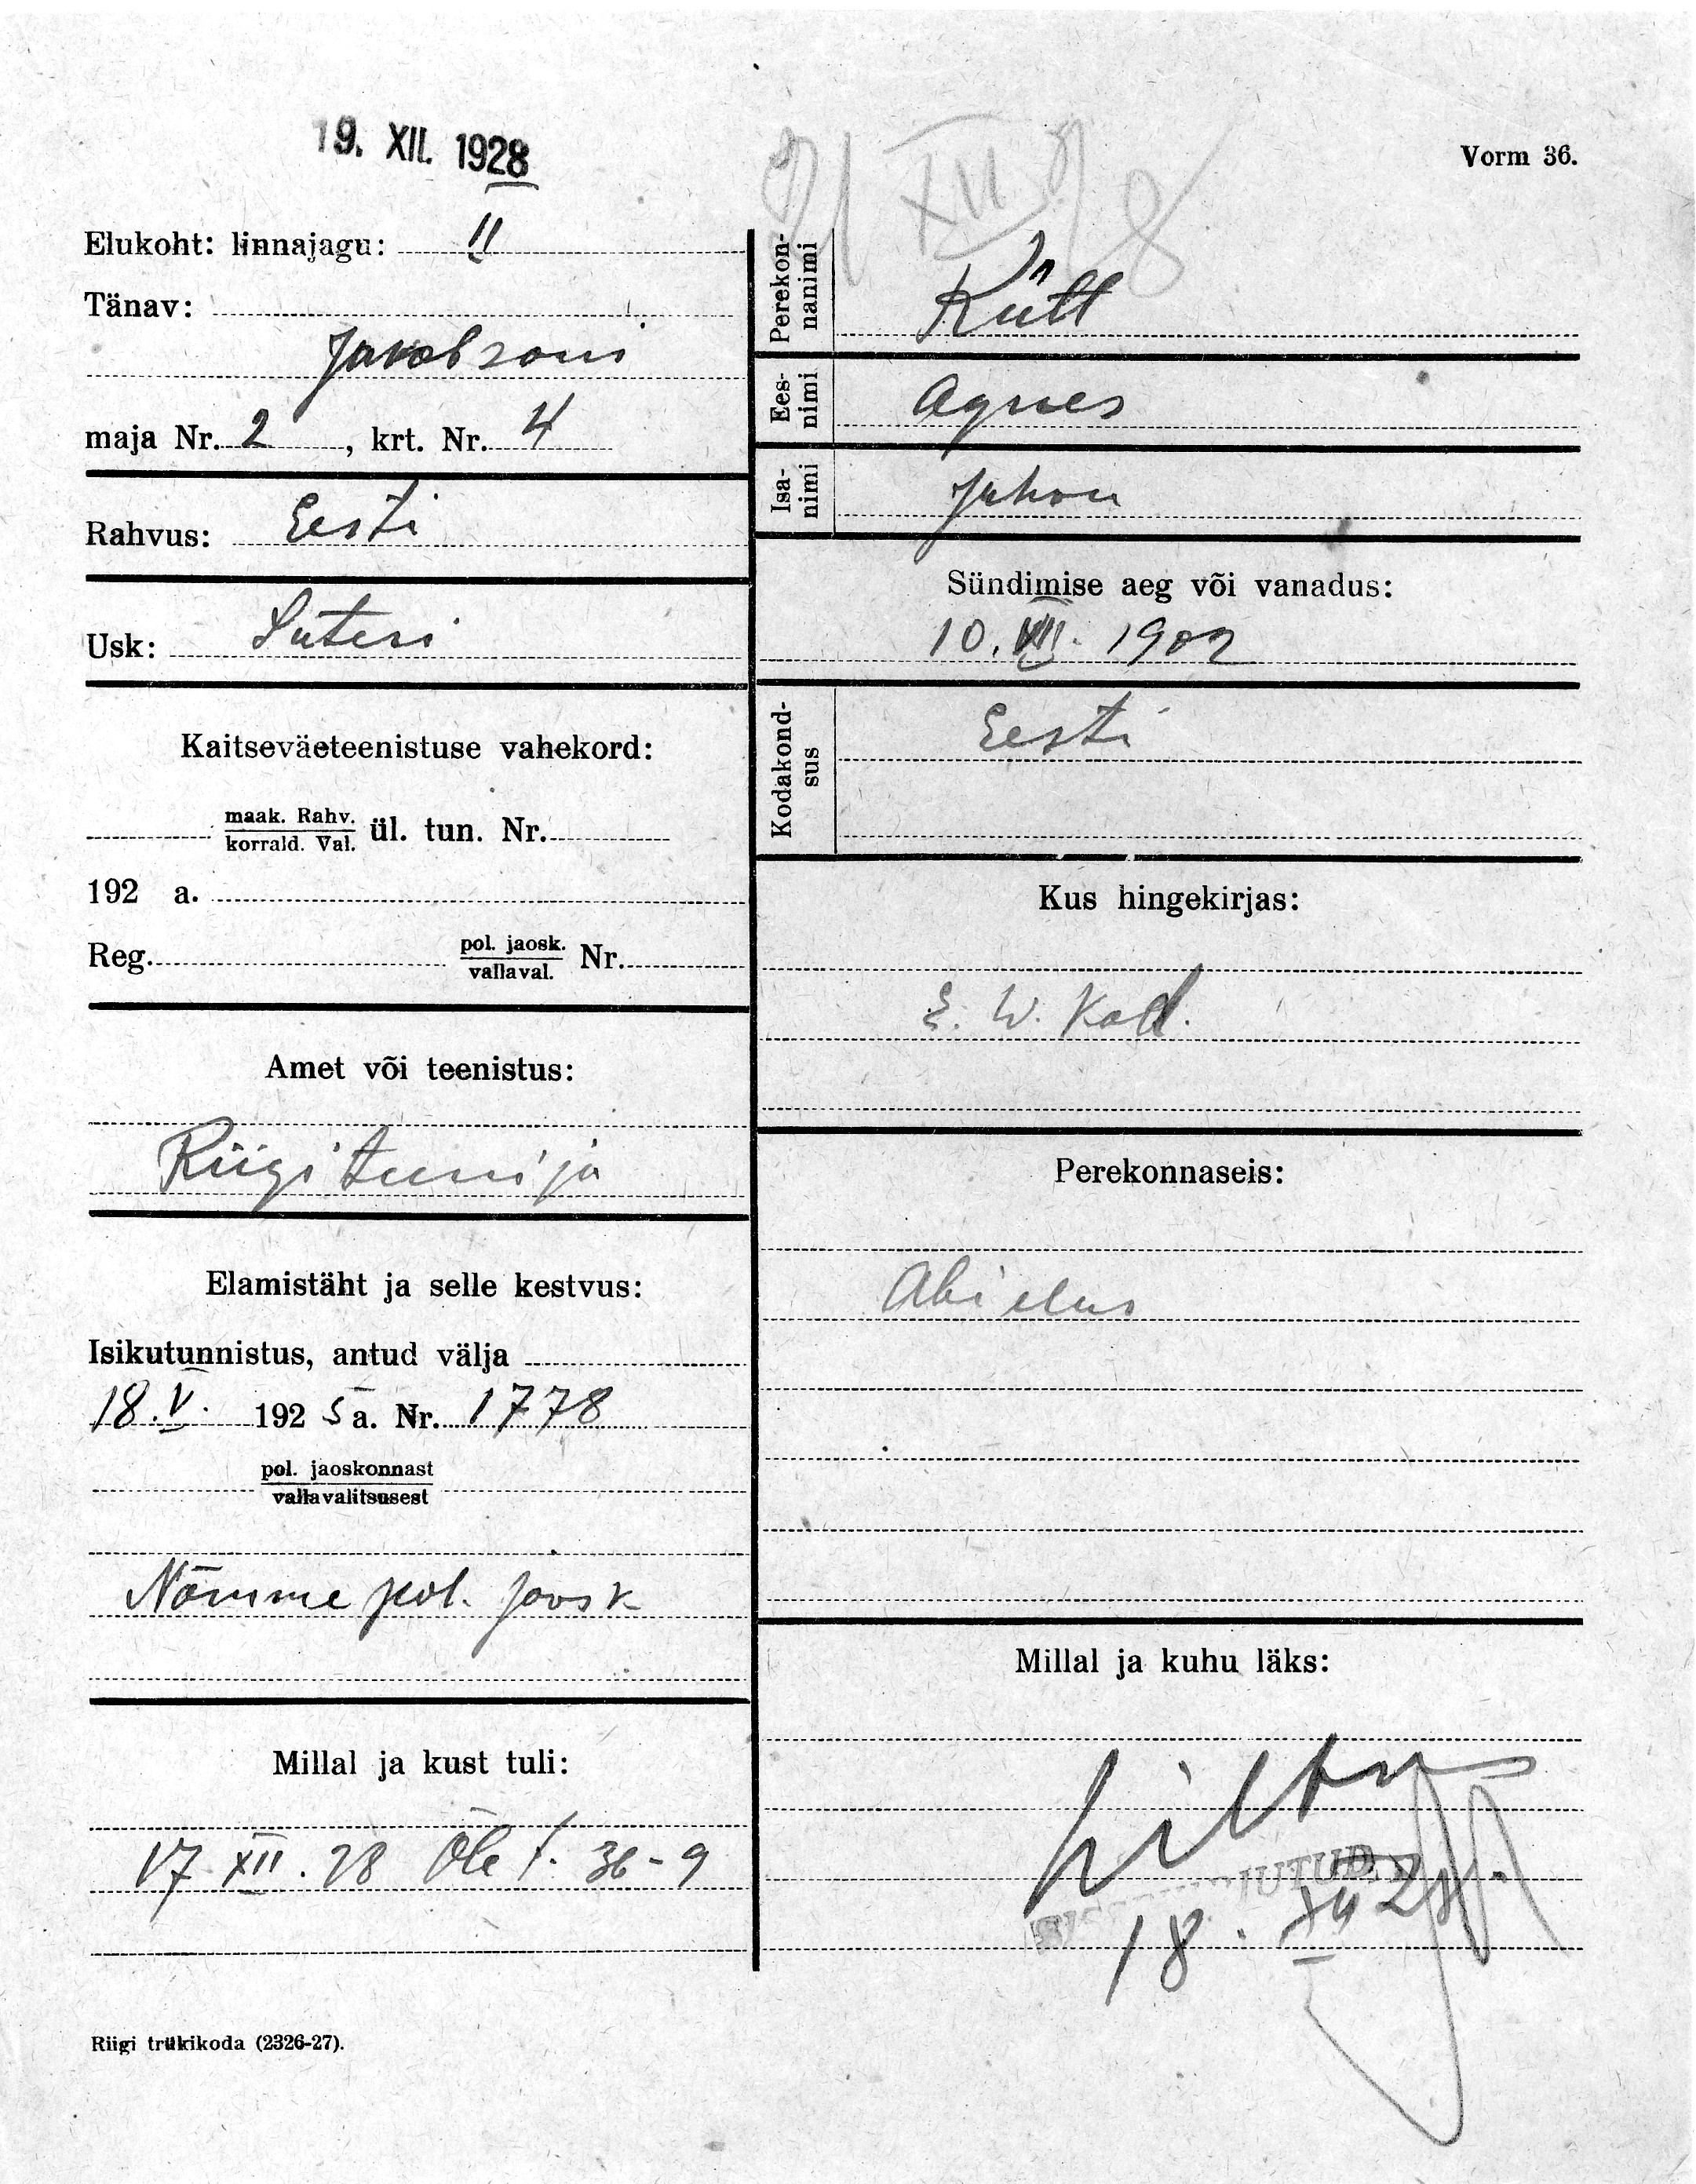 19. XII. 1928
21 XII 28
Vorm 36.
Elukoht: linnajagu: II
Tänav:
Jakobsoni
maja Nr. 2, krt. Nr. 4
Rahvus: Eesti
Usk: Luteri
Kaitseväeteenistuse vahekord:
maak. Rahv.
korrald. Val. ül. tun. Nr.
192 a.
Reg. pol. jaosk.
vallaval. Nr.
Amet või teenistus:
Riigi teenija
Elamistäht ja selle kestvus:
Isikutunnistus, antud välja
18. V. 1925 a. Nr. 1778
pol. jaoskonnast
vallavalitsusest
Nõmme pol. jaosk
Millal ja kust tuli:
17 XII. 28 Õle t. 36-9
Riigi trükikoda (2326-27).
Perekon-
nanimi
Kütt
Ees-
nimi
Agnes
Isa-
nimi
Juhan
Sündimise aeg või vanadus:
10. XII. 1902
Kodakond-
sus
Eesti
Kus hingekirjas:
E. W. Kod.
Perekonnaseis:
Abielus
Millal ja kuhu läks:
18. XII 28